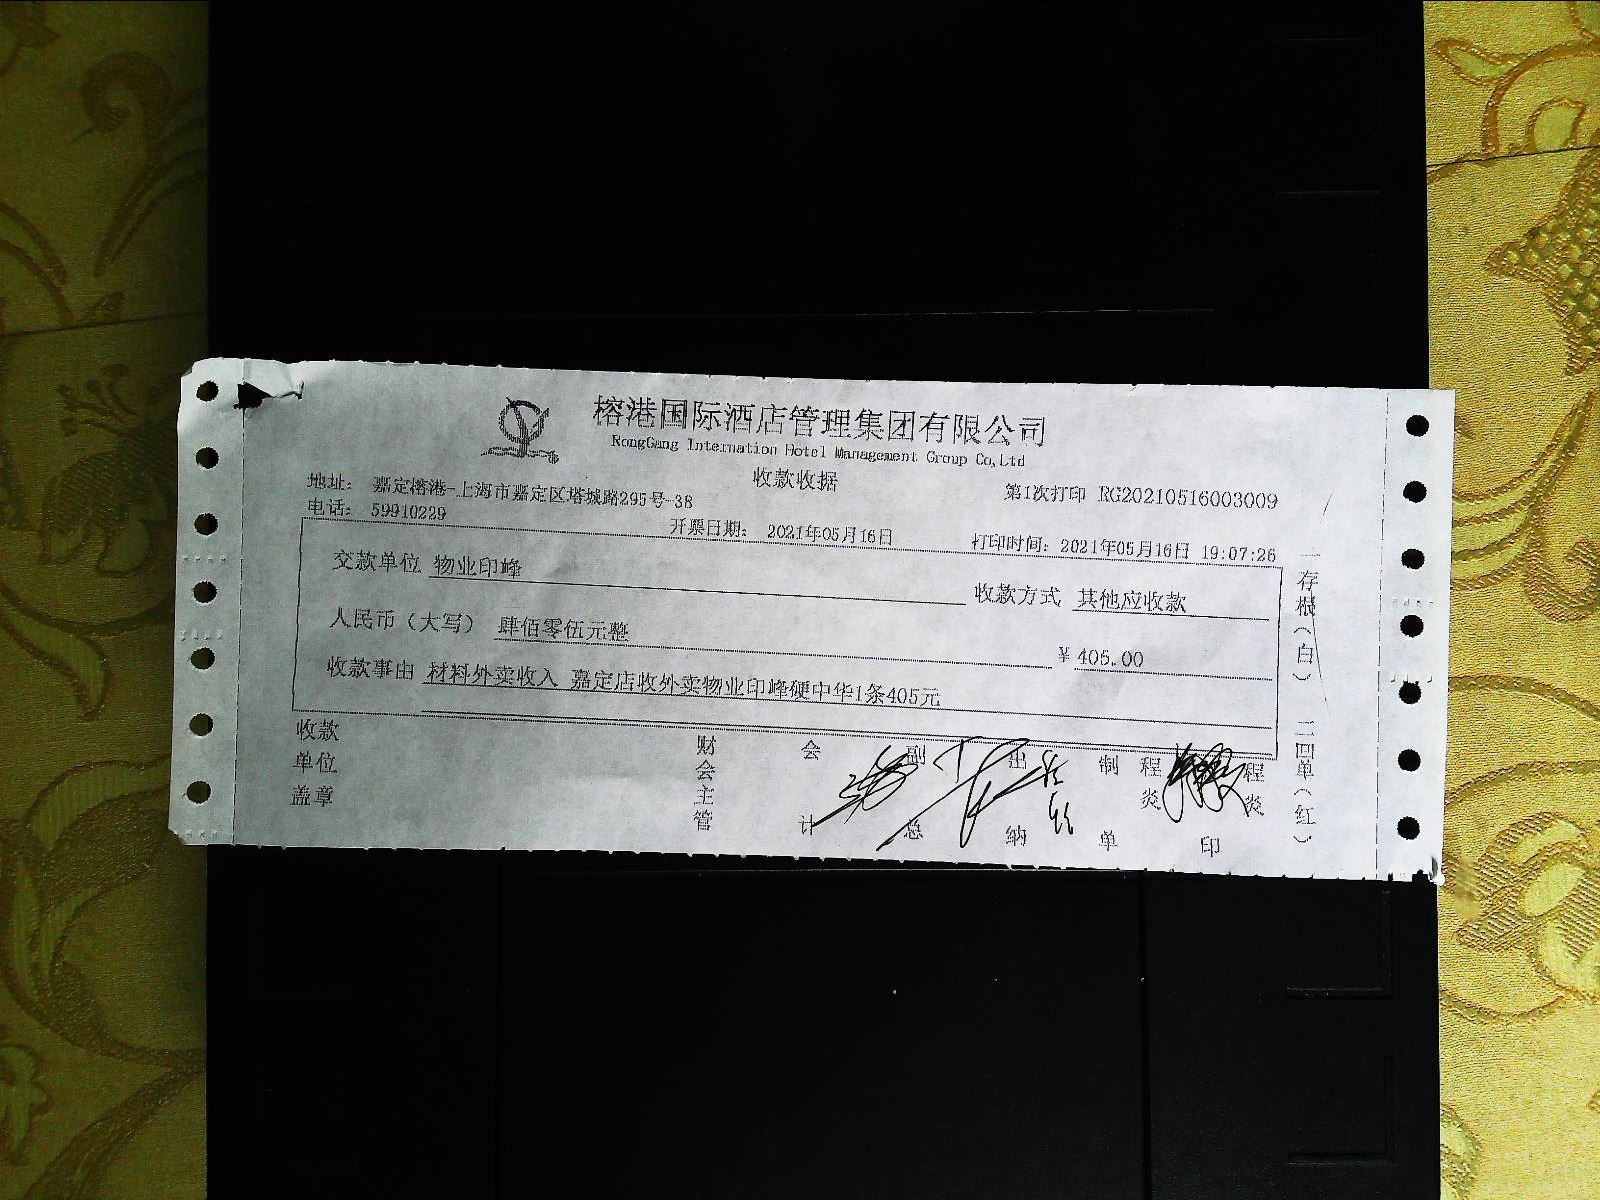 榕港国际酒店管理集团有限公司
RongGang Internation Hotel Management Group Co,Ltd
收款收据
地址： 嘉定榕港-上海市嘉定区塔城路295号-38
第1次打印 RG20210516003009
电话： 59910229
开票日期： 2021年05月16日
打印时间： 2021年05月16日 19:07:26
交款单位 物业印峰
收款方式 其他应收款
人民币（大写） 肆佰零伍元整
￥405.00
收款事由 材料外卖收入 嘉定店收外卖物业印峰硬中华1条405元
收款单位盖章
财会主管
会计
副总
出纳
制单
程炎
印
程炎
一存根（白） 二回单（红）